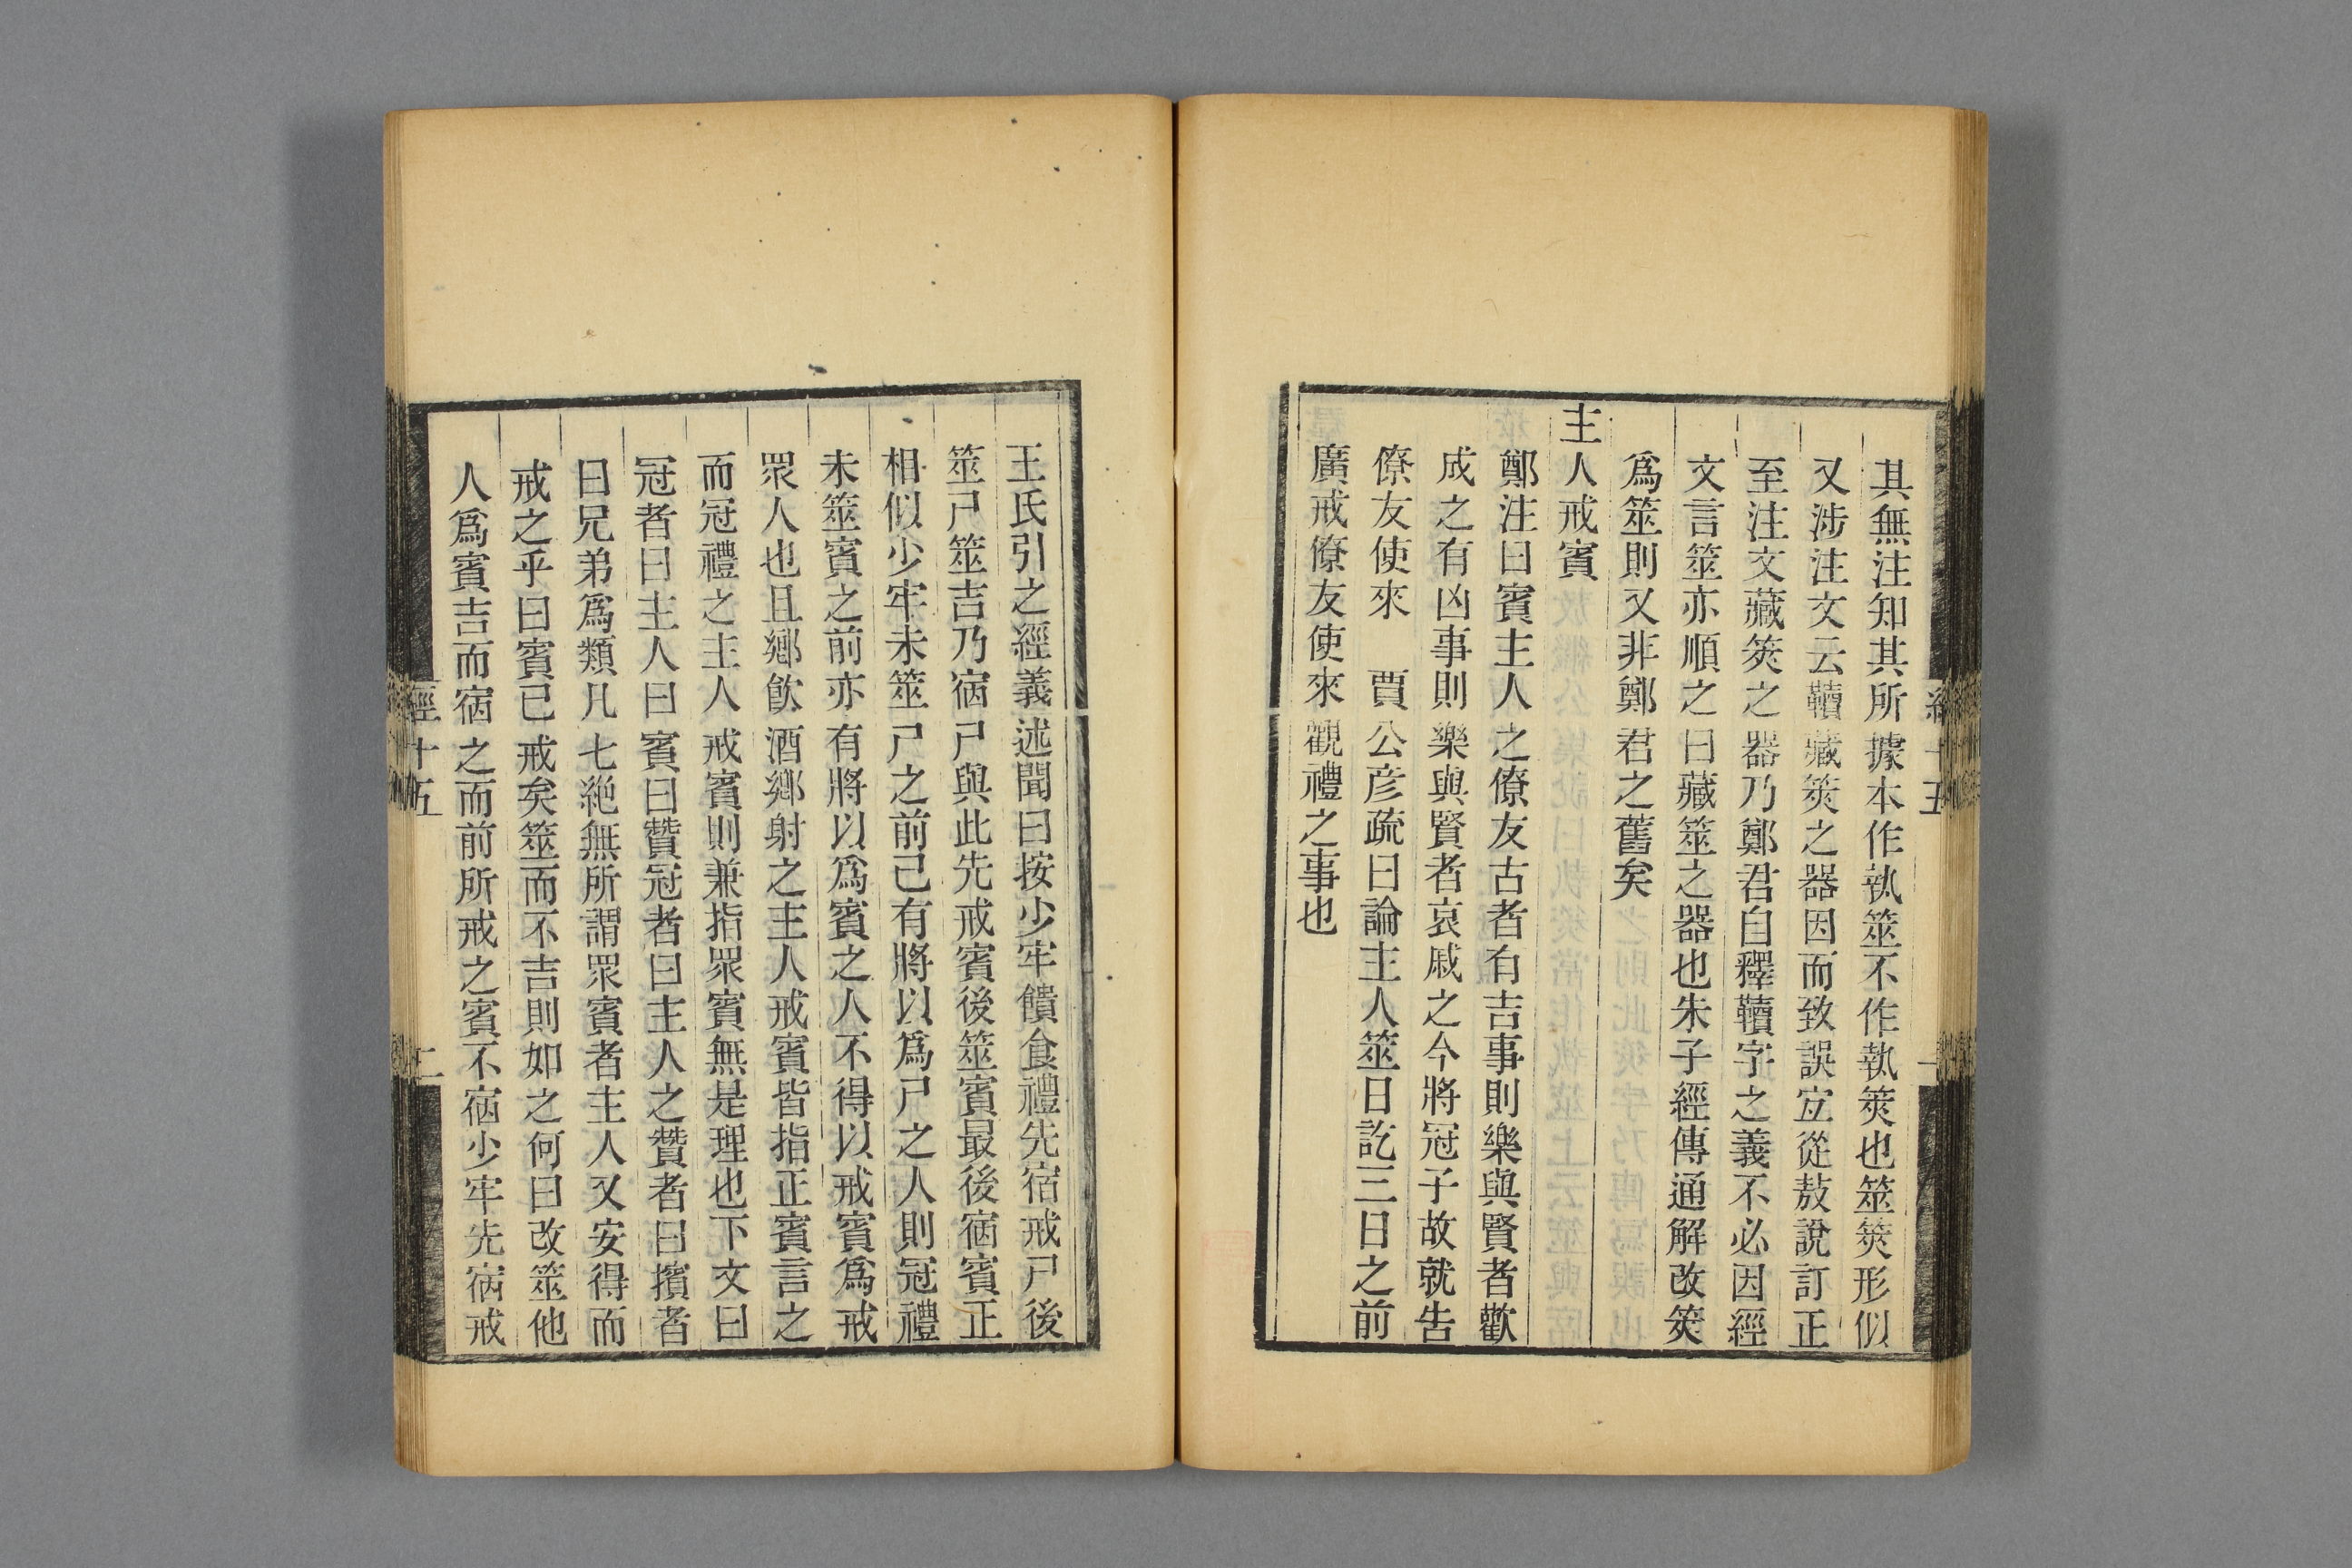 其無注知其所據本作執筮不作執筴也筮筴形似
又涉注文云韇藏筴之器因而致誤宐從敖說訂正
至注文藏筴之器乃鄭君自釋韇字之義不必因經
文言筮亦順之曰藏筮之器也朱子經傳通解改筴
爲筮則又非鄭君之舊矣
主人戒賓
鄭注曰賓主人之僚友古者有吉事則樂與賢者歡
成之有凶事則樂與賢者哀戚之今將冠子故就告
僚友使來　賈公彦疏曰論主人筮日訖三日之前
廣戒僚友使來觀禮之事也
王氏引之經義述聞曰按少牢饋食禮先宿戒尸後
筮尸筮吉乃宿尸與此先戒賓後筮賓最後宿賓正
相似少牢未筮尸之前己有將以爲尸之人則冠禮
未筮賓之前亦有將以爲賓之人不得以戒賓爲戒
眾人也且鄉飮酒鄉射之主人戒賓皆指正賓言之
而冠禮之主人戒賓則兼指眾賓無是理也下文曰
冠者曰主人曰賓曰贊冠者曰主人之贊者曰擯者
曰兄弟爲類凡七絶無所謂眾賓者主人又安得而
戒之乎曰賓已戒矣筮而不吉則如之何曰改筮他
人爲賓吉而宿之而前所戒之賓不宿少牢先宿戒
經十五
二